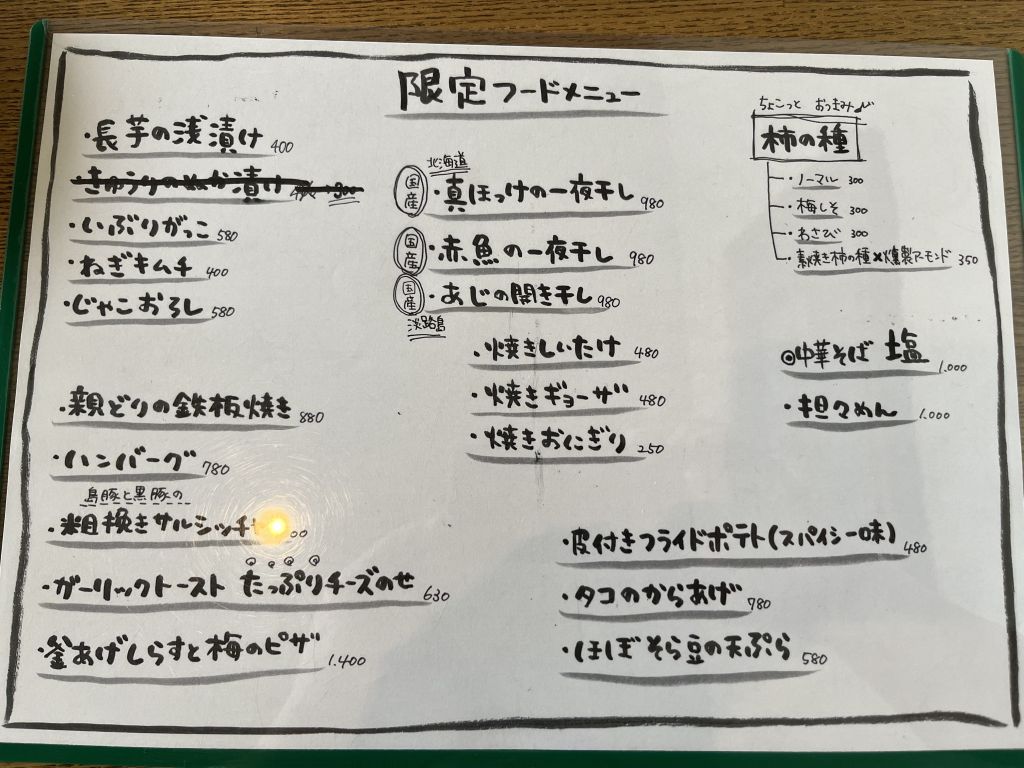 限定フードメニュー
・長芋の浅漬け 400
・きゅうりのぬか漬け
・いぶりがっこ 580
・ねぎキムチ 400
・じゃこおろし 580
・親どりの鉄板焼き 880
・ハンバーグ 780
島豚と黒豚の
・粗挽きサルシッチ
・ガーリックトースト たっぷりチーズのせ 630
・釜あげしらすと梅のピザ 1.400
北海道
国産 ・真ほっけの一夜干し 980
国産 ・赤魚の一夜干し 980
国産 ・あじの開き干し 980
淡路島
・焼きしいたけ 480
・焼きギョーザ 480
・焼きおにぎり 250
ちょこっと おつまみ♪
柿の種
・ノーマル 300
・梅しそ 300
・わさび 300
・素焼き柿の種×燻製アーモンド 350
◎中華そば 塩 1.000
・担々めん 1.000
・皮付きフライドポテト(スパイシー味) 480
・タコのからあげ 780
・ほぼそら豆の天ぷら 580